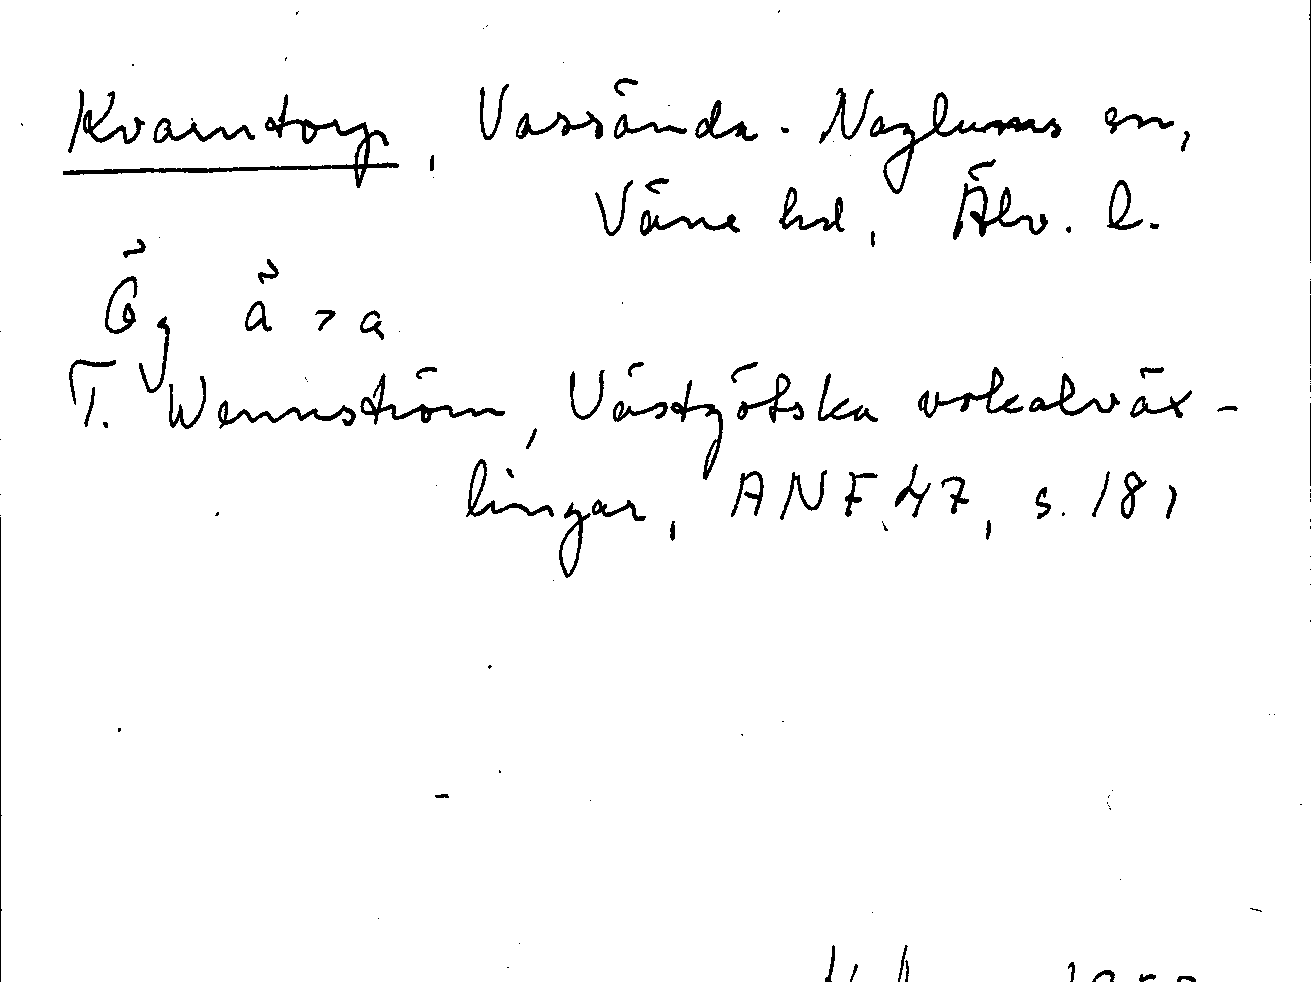 Kvarntorp, Vassända-Naglums sn,
Väne hd, Älv. l.
Övg ä > a
T. Wennström, Västgötska vokalväx-
lingar, ANF 47, s. 181